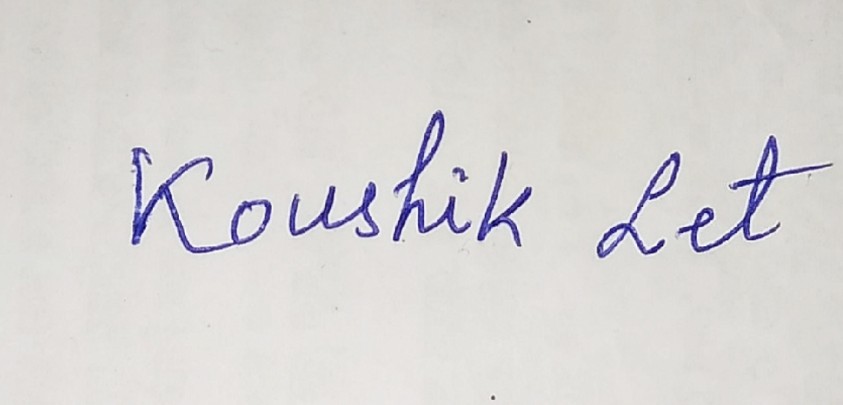 Koushik Let